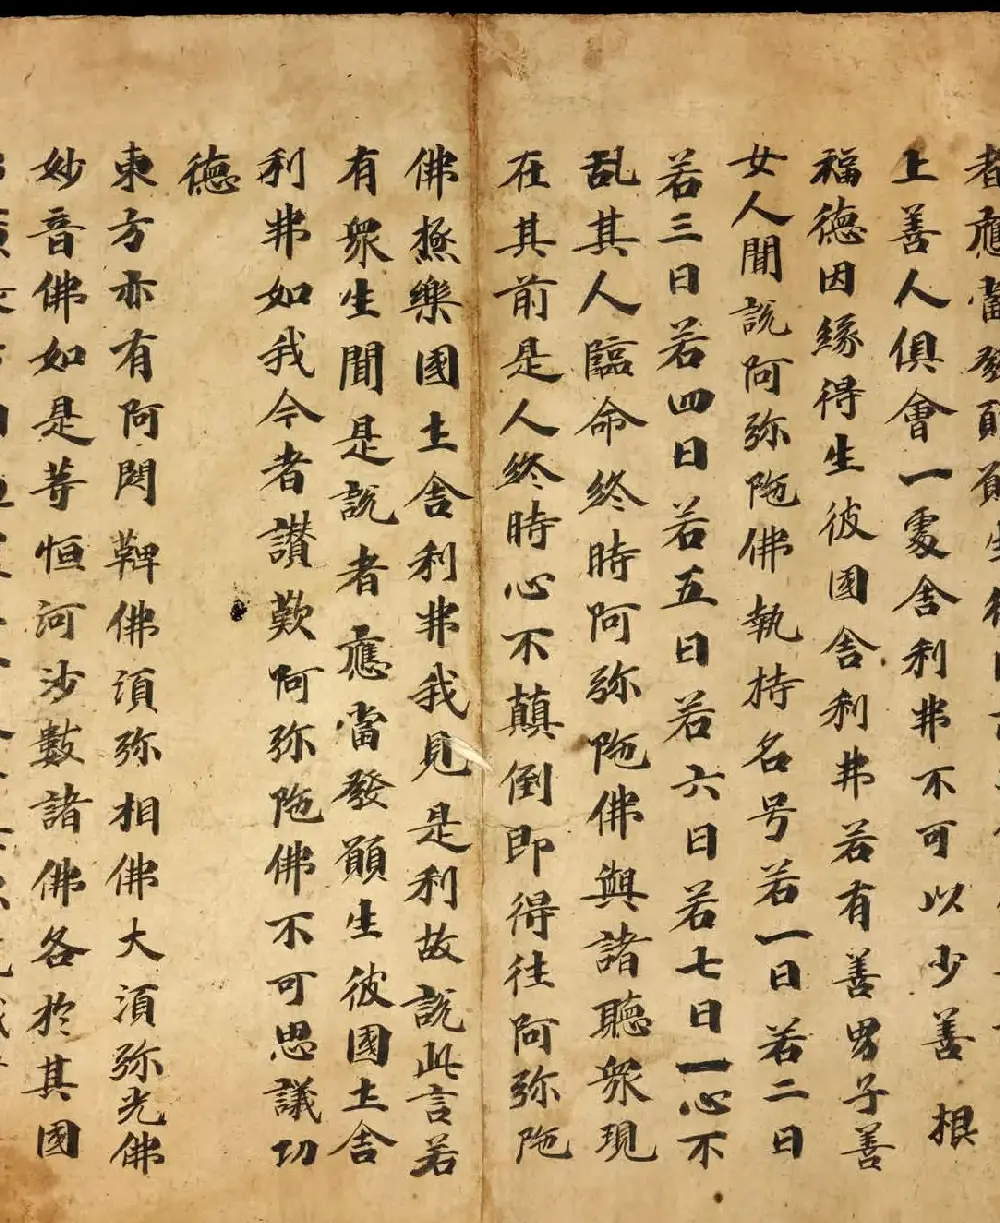 者應當發願願生彼
上善人俱會一處舍利弗不可以少善根
福德因緣得生彼國舍利弗若有善男子善
女人聞說阿弥陁佛執持名号若一日若二日
若三日若四日若五日若六日若七日一心不
乱其人臨命終時阿弥陁佛與諸聽衆現
在其前是人終時心不顛倒即得往阿弥陁
佛極樂國土舍利弗我見是利故說此言若
有衆生聞是說者應當發願生彼國土舍
利弗如我今者讃歎阿弥陁佛不可思議功
德
東方亦有阿閦鞞佛湏弥相佛大湏弥光佛
妙音佛如是等恒河沙數諸佛各於其國